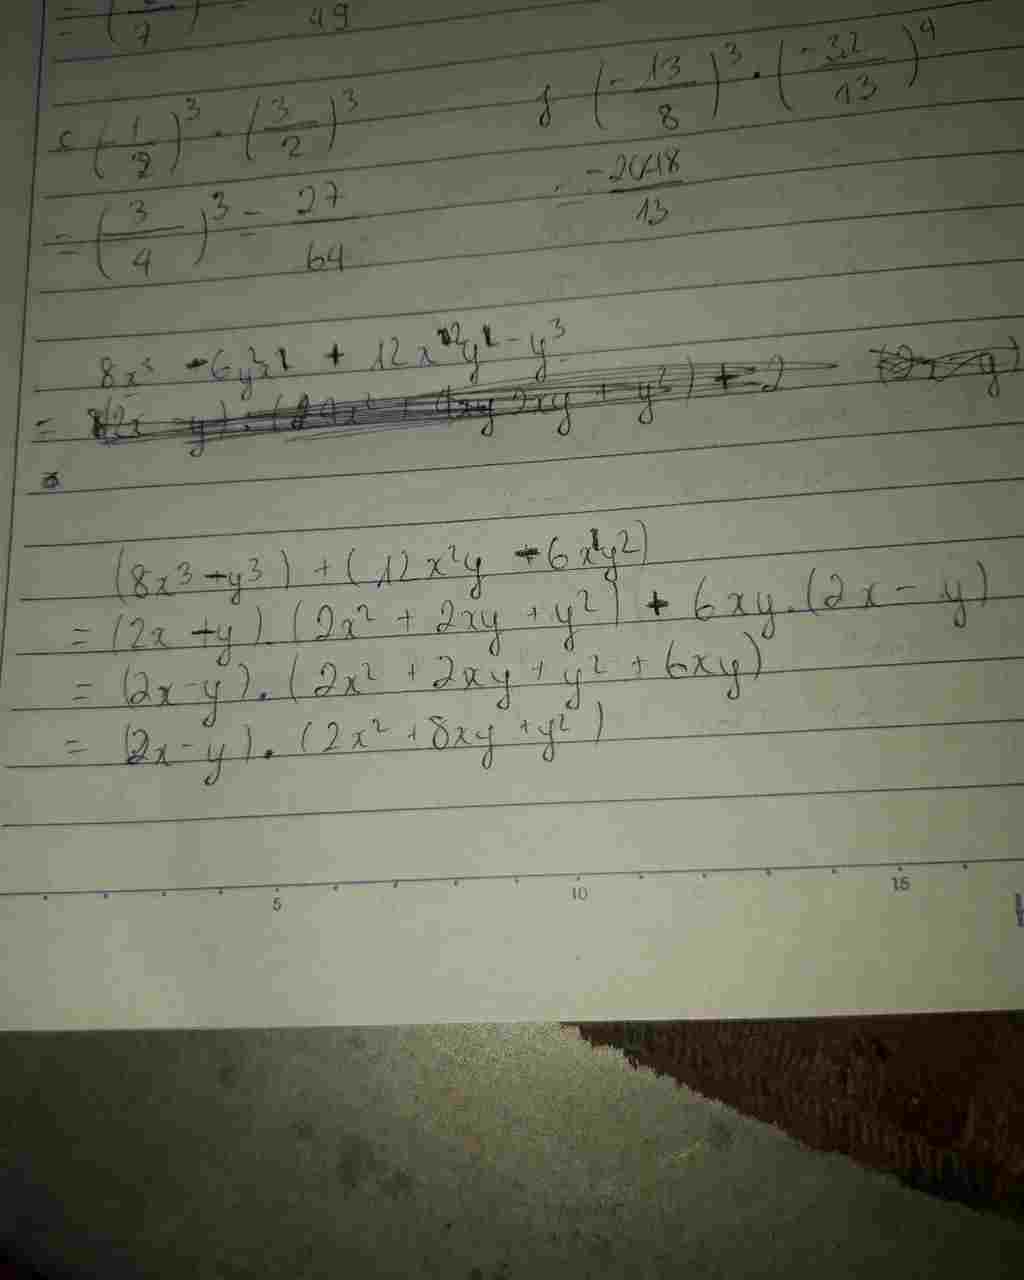 = (/7) = /49
c (-1/2)^3 . (3/2)^3
f (-13/8)^3 . (-32/13)^4
= (3/4)^3 = 27/64
= -2048/13
8x^3 - 6y^2x + 12x^2y - y^3
= (2x - y) . ( 4x^2 + 2xy + y^2)
(8x^3 - y^3) + (12x^2y - 6xy^2)
= (2x - y) . (2x^2 + 2xy + y^2) + 6xy . (2x - y)
= (2x - y) . (2x^2 + 2xy + y^2 + 6xy)
= (2x - y) . (2x^2 + 8xy + y^2)
5 10 15